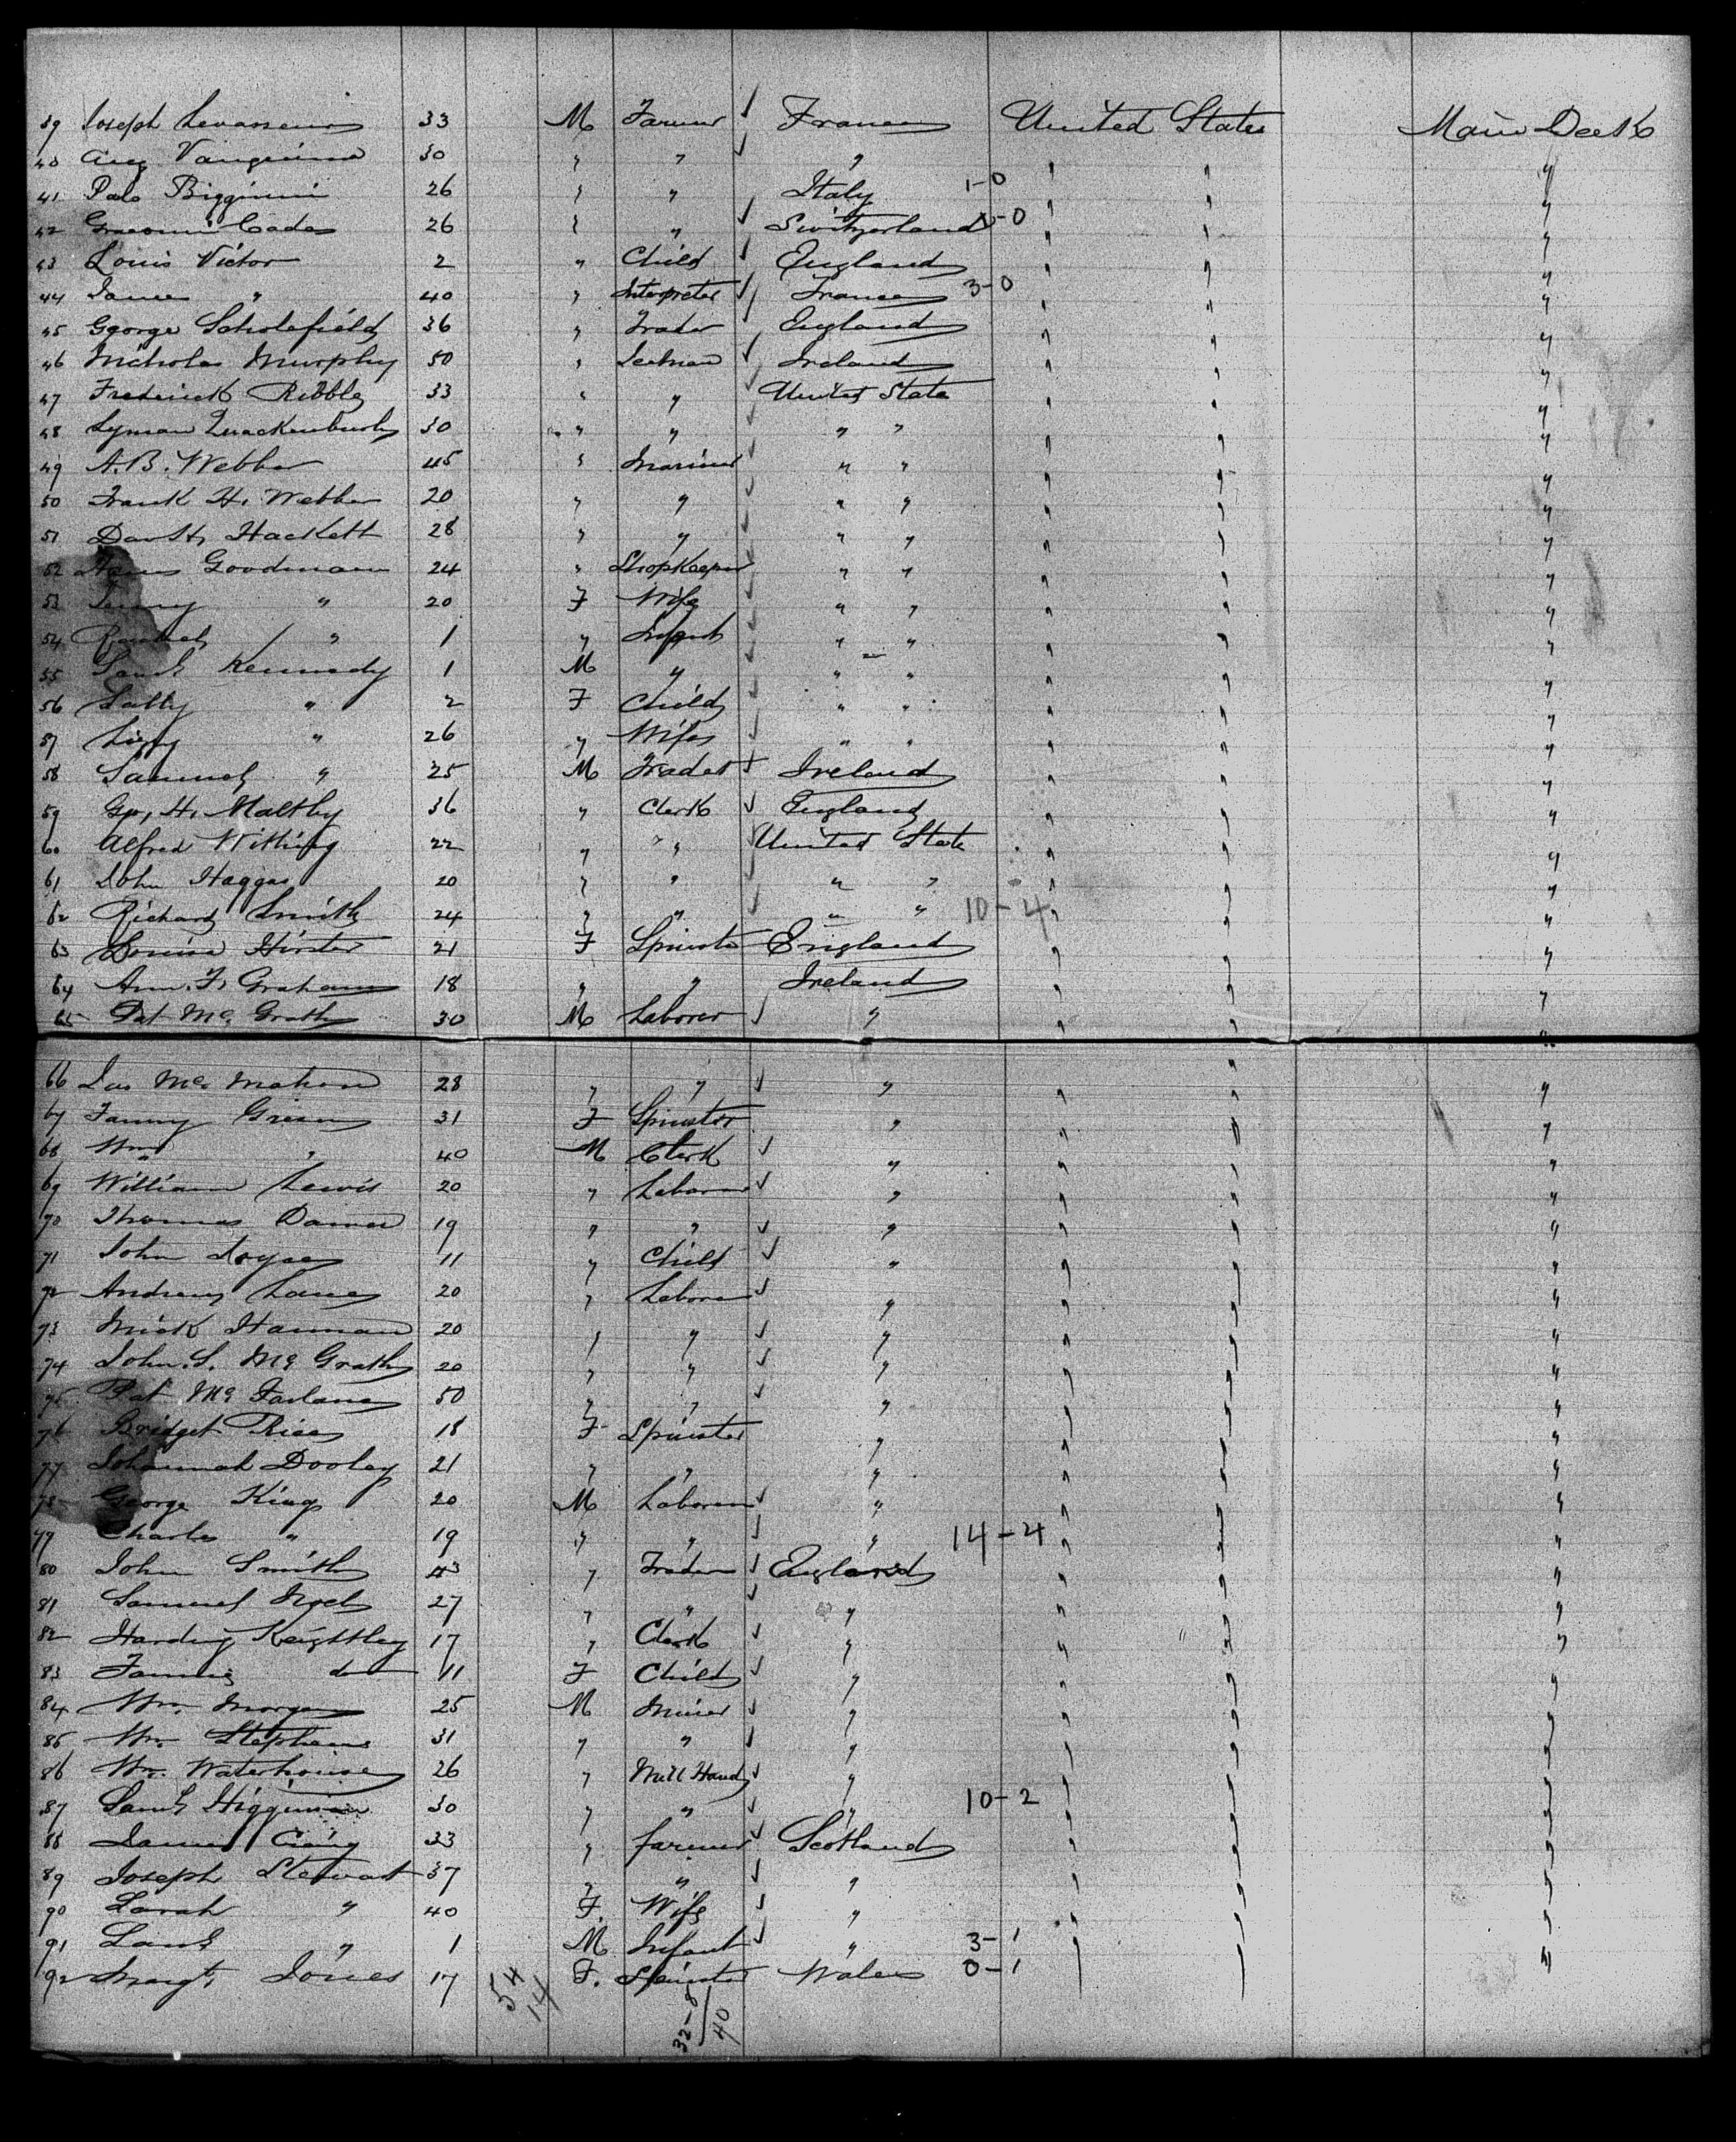 39 Joseph Levasseur 33 M Farmer ✓ France United States Main Deck
40 Aug Vanguime 30 " " ✓ " " " "
41 Palo Biggimi 26 " " Italy 1-0 " " "
42 26 " " ✓ Switzerland -0 " " "
43 Louis Victor 2 " Child ✓ England " " "
44 James " 40 " Interpreter ✓ France 3-0 " " "
45 George Scholefield 36 " Trader England " " "
46 Nicholas Murphy 50 " ✓ Ireland " " "
47 Frederick Ribble 33 " " United State " " "
48 Lyman Quackenbush 30 " " ✓ " " " " "
49 A. B. Webber 45 " Mariner ✓ " " " " "
50 Frank H. Webber 20 " " ✓ " " " " "
51 Hackett 28 " " ✓ " " " " "
52 Goodman 24 " Shopkeeper " " " " "
53 Jenny " 20 F Wife ✓ " " " " "
54 " 1 " Infant ✓ " " " " "
55 Saml Kennedy 1 M " ✓ " " " " "
56 Sally " 2 F Child ✓ " " " " "
57 Lizzy " 26 " Wife ✓ " " " " "
58 Samuel " 25 M Trader ✓ Ireland " " "
59 Geo. H. Maltby 36 " Clerk ✓ England " " "
60 Alfred Withing 22 " " United State " " "
61 John Haggas 20 " " ✓ " " " " "
62 Richard Smith 24 " " ✓ " " 10-4 " " "
63 Louisa Hirster 21 F Spinster England " " "
64 Ann. F. Graham 18 " " Ireland " " "
65 Pat Mc Grath 30 M Laborer ✓ " " " "
66 Jas Mc Mahon 28 " " ✓ " " " "
67 Fanny Green 31 F Spinster " " " "
68 Wm " 40 M Clerk ✓ " " " "
69 William Lewis 20 " Laborer ✓ " " " "
70 Thomas Damer 19 " " ✓ " " " "
71 John Joyce 11 " Child ✓ " " " "
72 Andrew Lane 20 " Laborer ✓ " " " "
73 Mick Hannan 20 " " ✓ " " " "
74 John. S. Mc Grath 20 " " ✓ " " " "
75 Pat Mc Farlane 50 " " ✓ " " " "
76 Bridget Rice 18 F Spinster " " " "
77 Johannah Dooley 21 " " " " " "
78 George King 20 M Laborer ✓ " " " "
79 Charles " 19 " " ✓ " 14-4 " " "
80 John Smith 43 " Trader ✓ England " " "
81 Samuel Noel 27 " " ✓ " " " "
82 Harding Keightley 17 " Clerk ✓ " " " "
83 Fannie do 11 F Child ✓ " " " "
84 Wm. Morgan 25 M Miner ✓ " " " "
85 Wm. Stephens 31 " " ✓ " " " "
86 Wm. Waterhouse 26 " Mill Hand ✓ " " " "
87 Saml Higginson 30 " " ✓ " 10-2 " " "
88 James Craig 33 " farmer ✓ Scotland " " "
89 Joseph Stewart 37 " " ✓ " " " "
90 Sarah " 40 F. Wife ✓ " " " "
91 Saml " 1 M Infant ✓ " 3-1 " " "
92 Margt. Jones 17 F. Spinster Wales 0-1 " " "
54
14
32-8
40